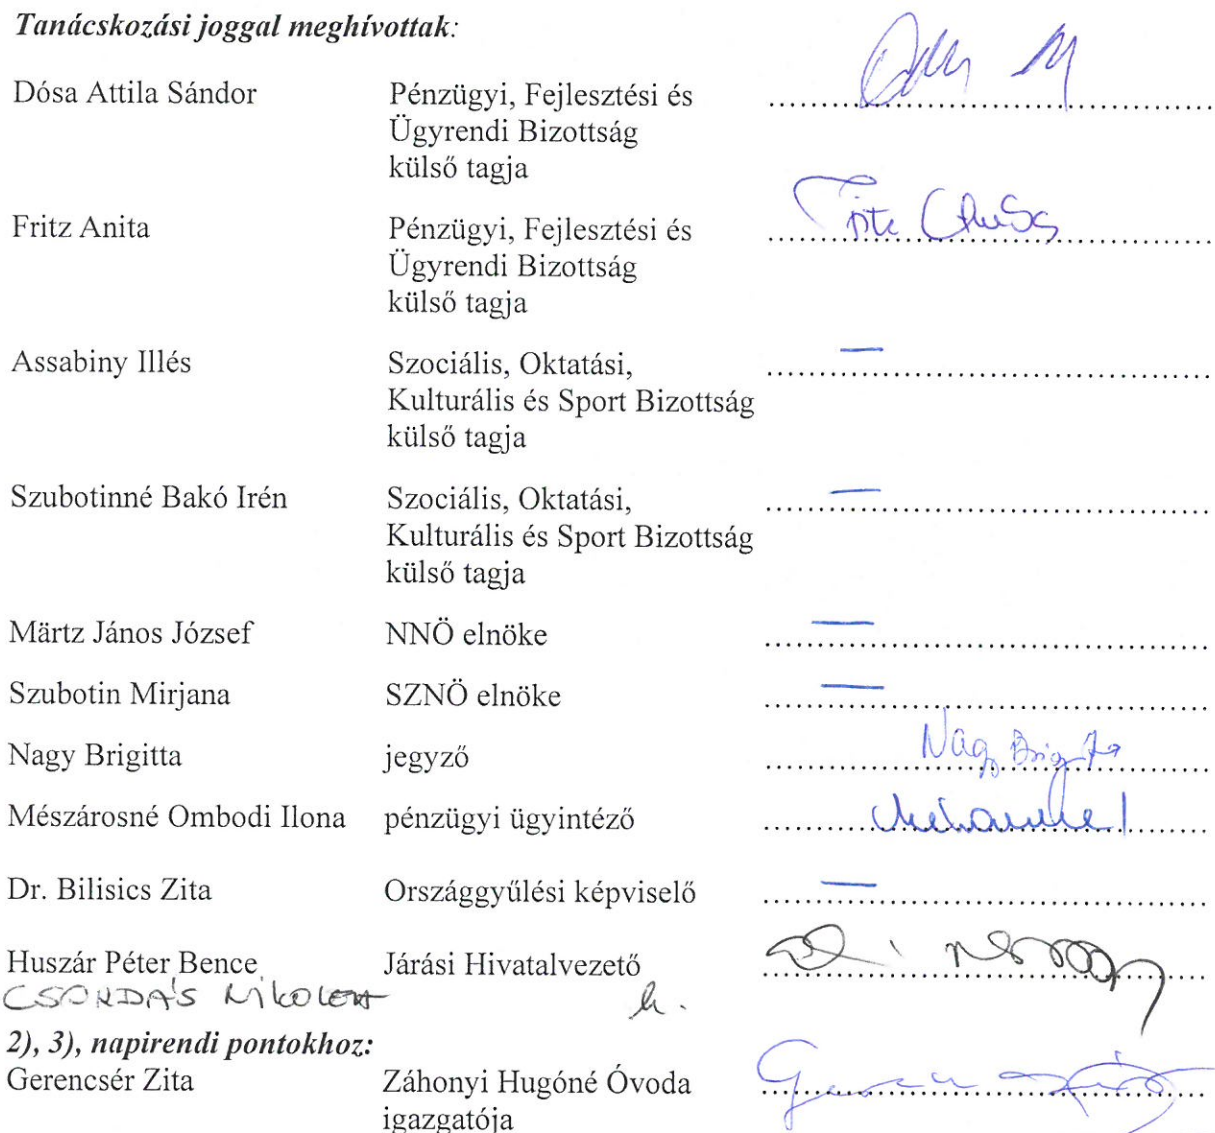 Tanácskozási joggal meghívottak:
Dósa Attila Sándor Pénzügyi, Fejlesztési és
Ügyrendi Bizottság
külső tagja
Fritz Anita Pénzügyi, Fejlesztési és
Ügyrendi Bizottság
külső tagja
Assabiny Illés Szociális, Oktatási,
Kulturális és Sport Bizottság
külső tagja
Szubotinné Bakó Irén Szociális, Oktatási,
Kulturális és Sport Bizottság
külső tagja
Märtz János József NNÖ elnöke
Szubotin Mirjana SZNÖ elnöke
Nagy Brigitta jegyző Nagy Brigitta
Mészárosné Ombodi Ilona pénzügyi ügyintéző
Dr. Bilisics Zita Országgyűlési képviselő
Huszár Péter Bence Járási Hivatalvezető
CSONDÁS h.
2), 3), napirendi pontokhoz:
Gerencsér Zita Záhonyi Hugóné Óvoda
igazgatója